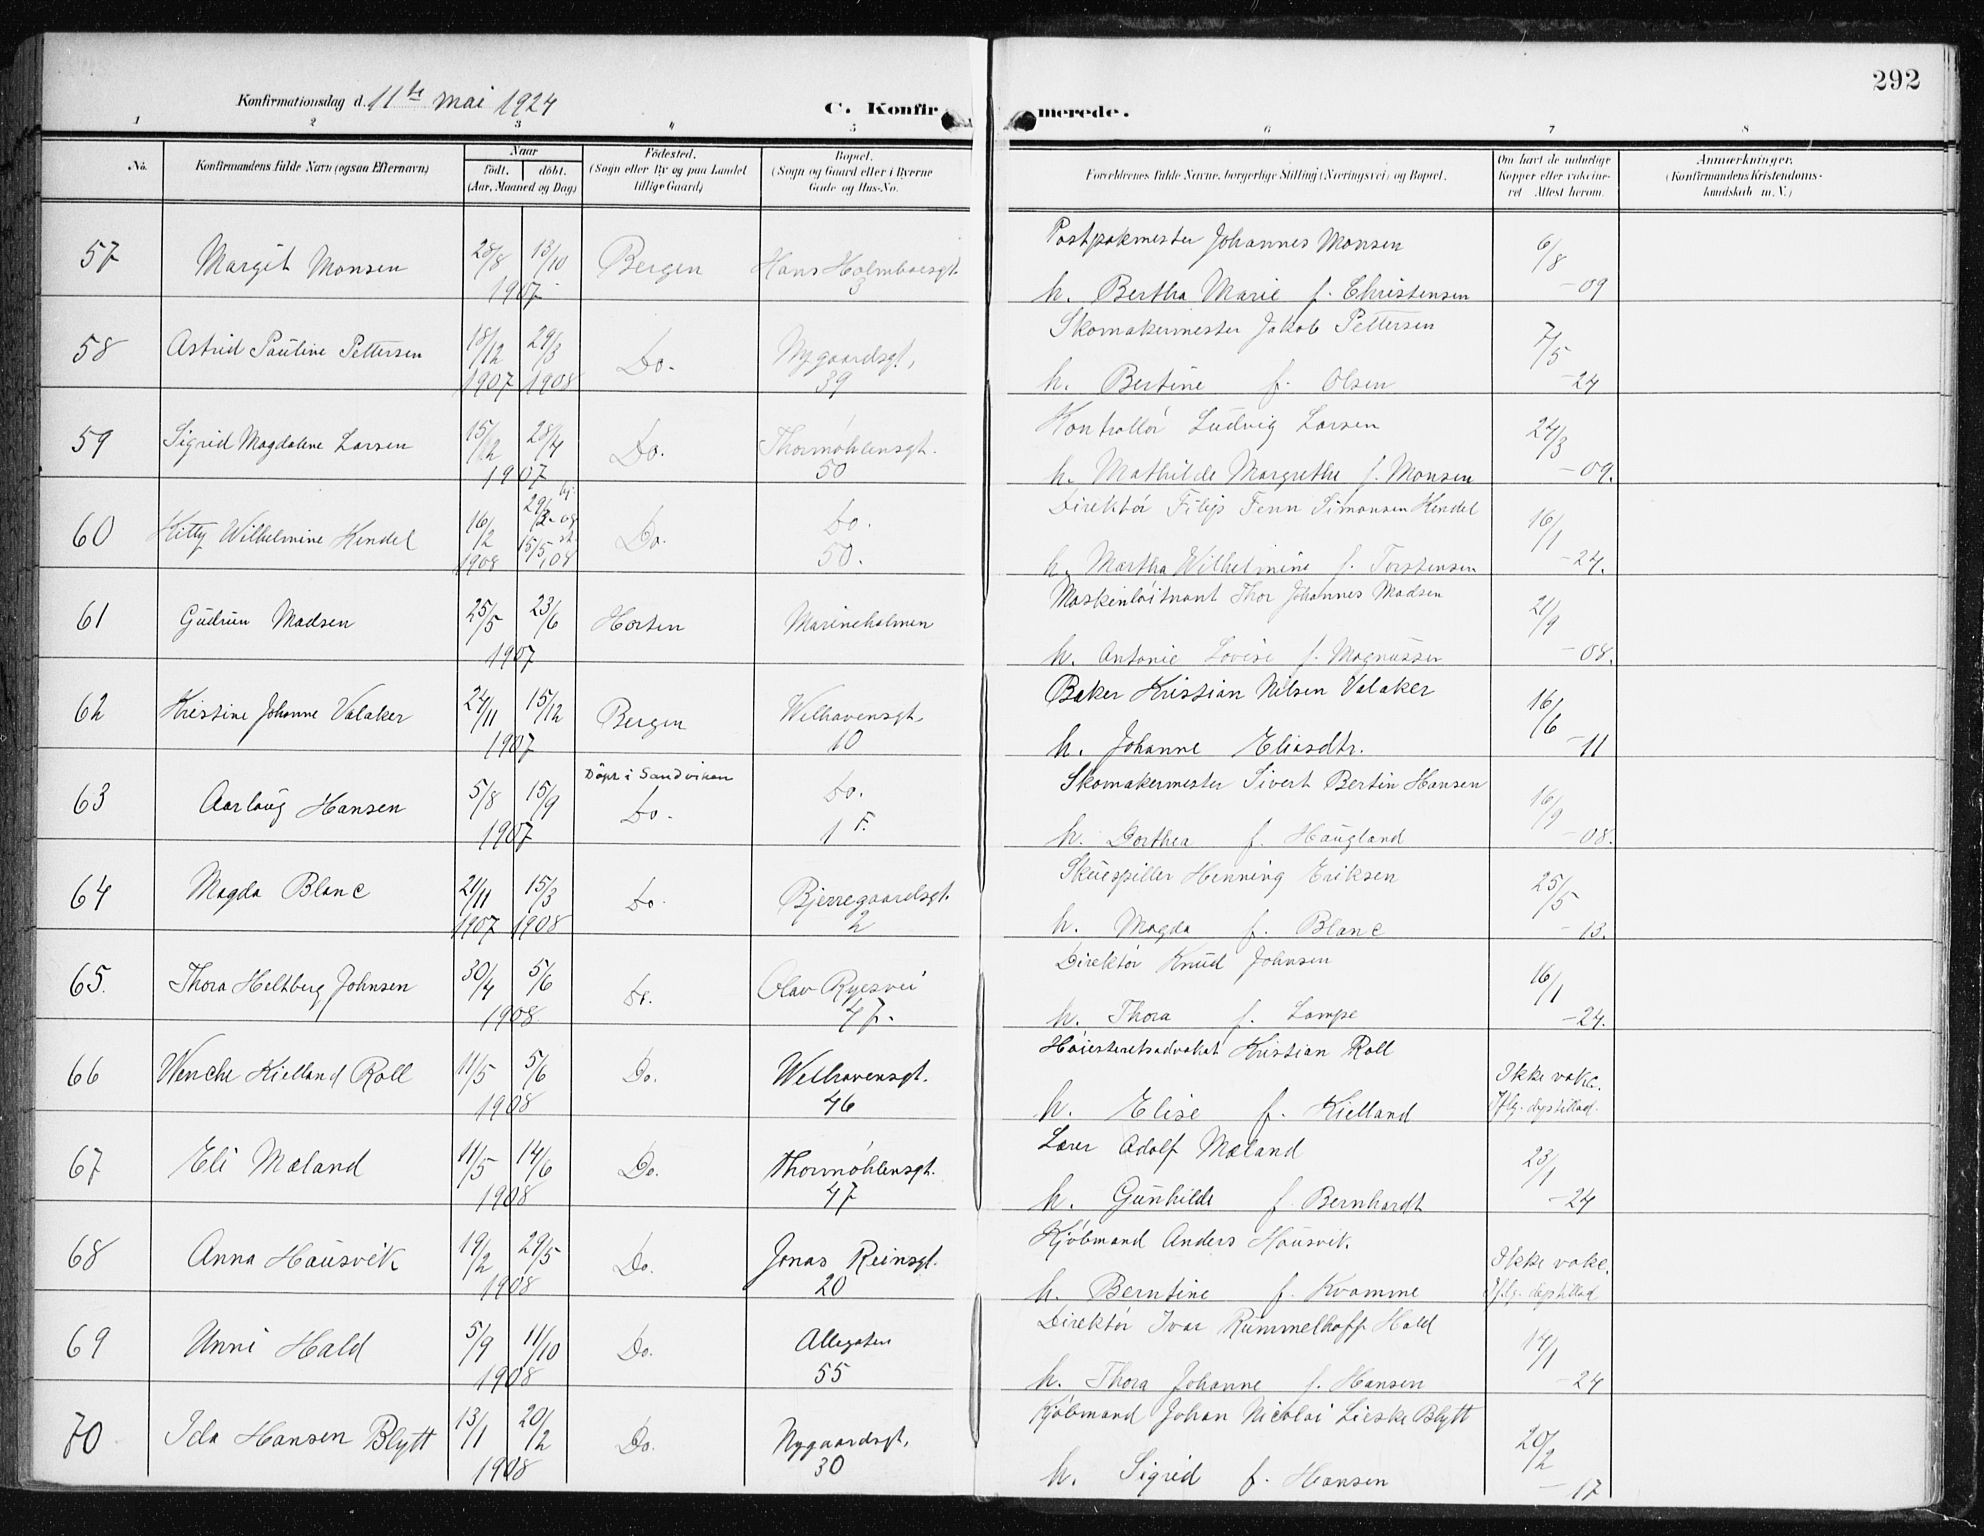 292
Konfirmationsdag d. 11te mai 1924
C. Konfirmerede.
1 2 3 4 5 6 7 8
No. Konfirmandens fulde Navn (ogsaa Efternavn) Naar født. døbt. (Aar, Maaned og Dag) Fødested. (Sogn eller By og paa Landet tillige Gaard) Bopæl. (Sogn og Gaard eller i Byerne Gade og Hus-No. Forældrenes fulde Navne, borgerlige Stilling (Næringsvei) og Bopæl. Om havt de naturlige Kopper eller vaccineret Attest herom. Anmærkninger. (Konfirmandens Kristendomskundskab m. V.)
57 Margit Monsen 28/8 13/10 1907 Bergen Hans Holmboesgt. 3 Postpakmester Johannes Monsen 6/8 -09
h. Bertha Marie f. Christensen
58 Astrid Pauline Pettersen 18/12 1907 29/3 1908 Do. Nygaardsgt. 39 Skomakermester Jakob Pettersen 7/5 -24
h. Bertine f. Olsen
59 Sigrid Magdalene Larsen 15/12 28/4 1907 Do. Thormøhlensgt. 50 Kontrollør Ludvig Larsen 24/3 -09.
h. Mathilde Margrethe f. Monsen
60 Kitty Wilhelmine Kendel 16/2 1908 hj. 29/2-08 st. 15/5.08 Do. Do. 50. Direktør Filip Fenn Simonsen Kendel 16/1 -24.
h. Martha Wilhelmine f. Torstensen
61 Gudrun Madsen 25/5 23/6 1907 Horten Marineholmen Maskinløitnant Thor Johannes Madsen 21/9 -08.
h. Antonie Lovise f. Magnussen
62 Kristine Johanne Valaker 24/11 15/12 1907 Bergen Welhavensgt. 10 Baker Kristian Nilsen Valaker 16/6 -11
h. Johanne Eliasdtr.
63 Aarlaug Hansen 5/8 15/9 1907 Døpt i Sandviken Do. Do. 1 F. Skomakermester Sivert Bertin Hansen 16/9 -08.
h. Dorthea f. Haugland
64 Magda Blanc 21/11 1907 15/3 1908 Do. Bjerregaardsgt. 2 Skuespiller Henning Eriksen 25/5 -13.
h. Magda f. Blanc
65. Thora Heltberg Johnsen 30/4 5/6 1908 Do. Olav Ryesvei 47. Direktør Knud Johnsen 16/1 -24.
h. Thora f. Lampe
66 Wenche Kielland Roll 11/5 5/6 1908 Do. Welhavensgt. 46 Høiesteretsadvokat Kristian Roll Ikke vakc.
h. Elise f. Kielland Iflg. dipstillad.
67 Eli Mæland 11/5 14/6 1908 Do. Thormøhlensgt. 47 Lærer Adolf Mæland 23/1 -24
h. Gunhilde f. Bernhardt
68 Anna Hausvik 19/2 29/5 1908 Do. Jonas Reinsgt. 20 Kjøbmand Anders Hausvik. Ikke vakc.
h. Berntine f. Kvamme Iflg. dipstillad
69 Unni Hald 5/9 11/10 1908 Do. Allegaten 55 Direktør Ivar Rummelhoff Hald 17/1 -24
h. Thora Johanne f. Hansen
70 Ida Hansen Blytt 13/1 20/2 1908 Do. Nygaardsgt. 30 Kjøbmand Johan Nicolai Lieske Blytt 20/2 -17
h. Sigrid f. Hansen